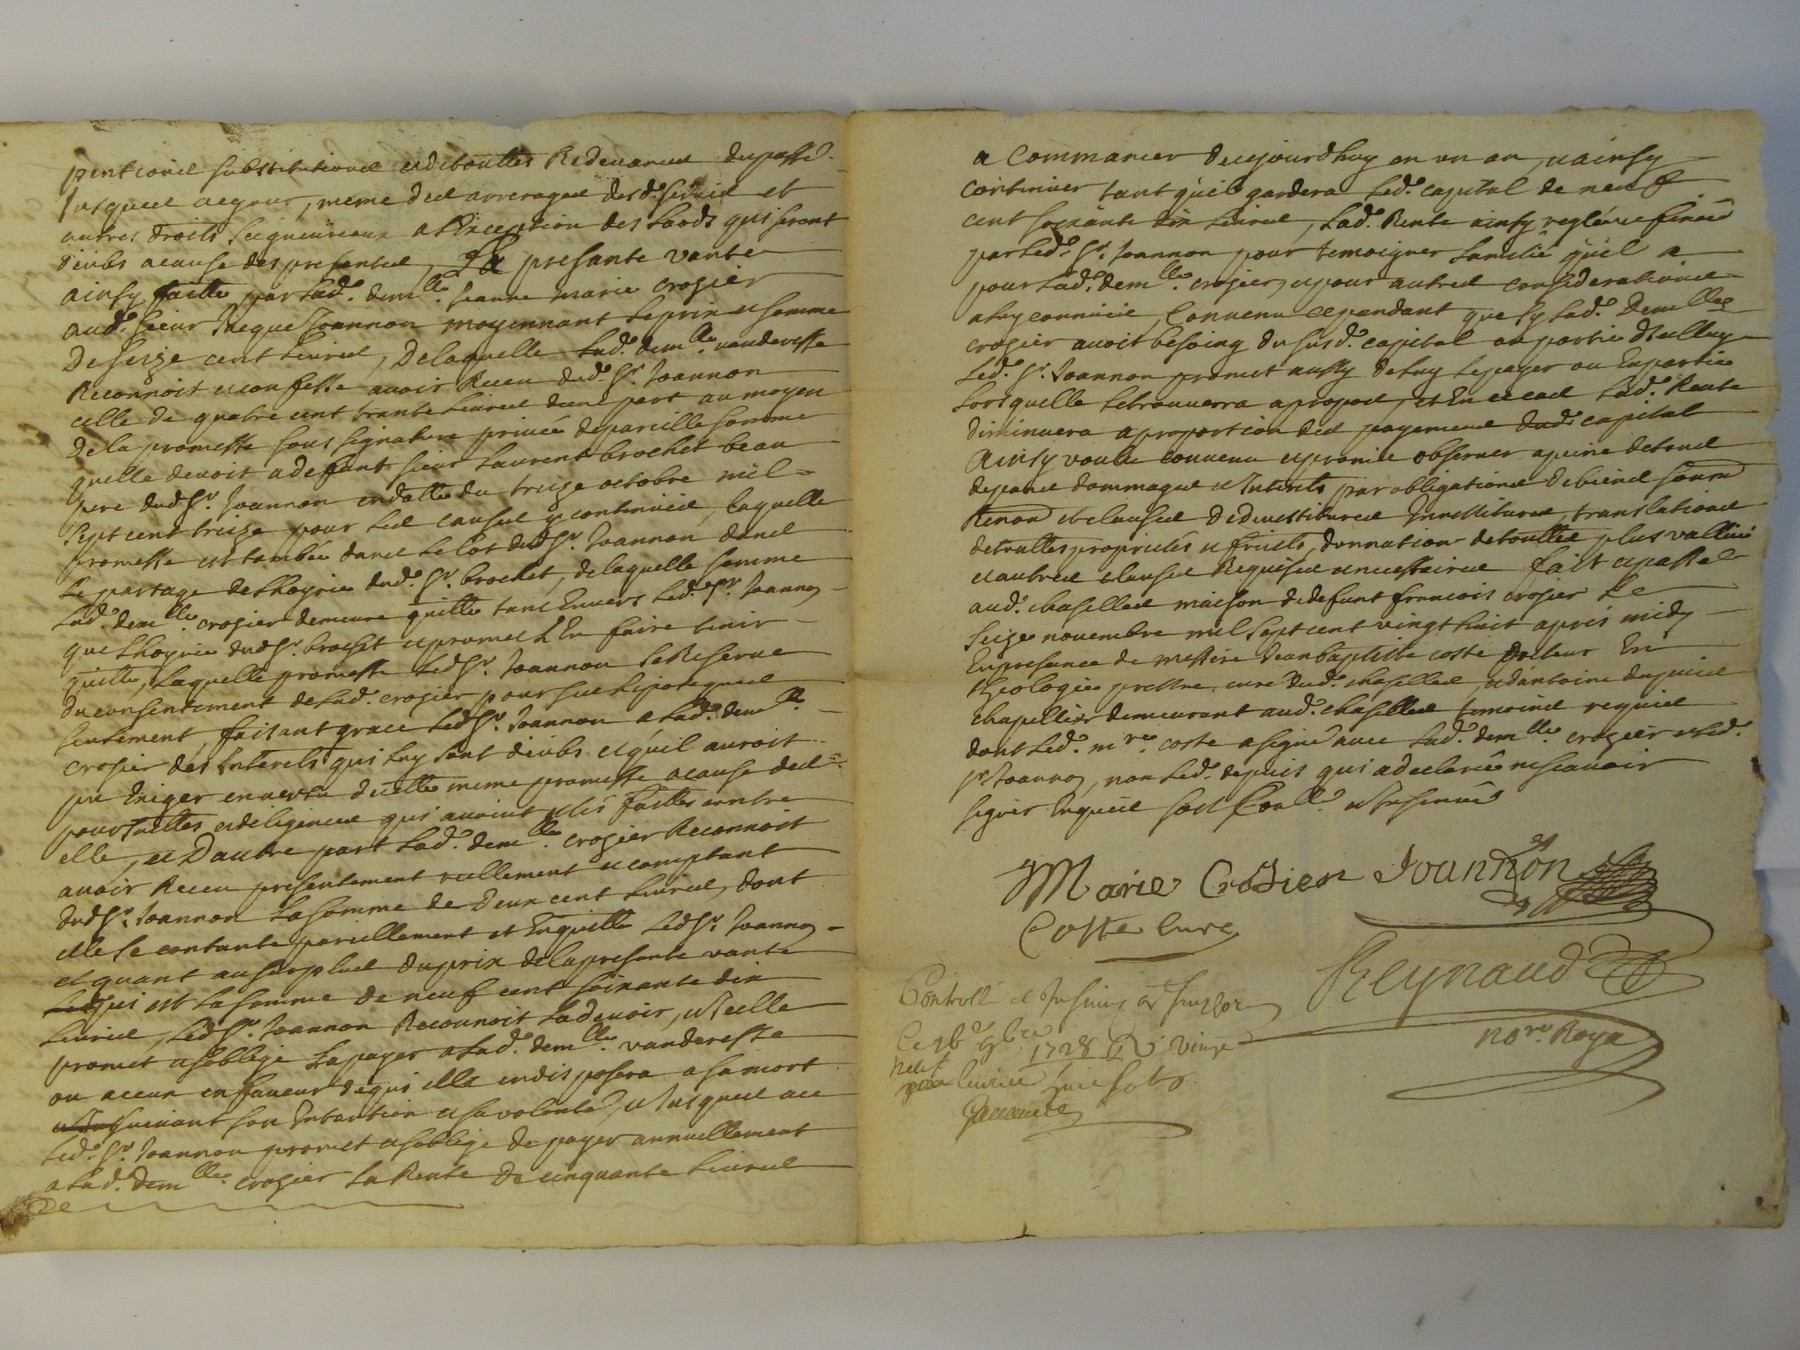 pentionel substitutionel et de touttes Redevances du passé
Jusques a ce jour, meme des arrerages desd. servis et
autres droits seigneuriaux a l'Exception des Laods qui seront
deubs a cause des presentes, La presante vante
ainsy faitte par lad. dem.lle Jeanne marie crosier
aud. sieur Jacque Joannon moyennant le prix et somme
De seize cent livres, De laquelle Lad. dem.lle vanderesse
Reconnoit et confesse avoir Receu dud. Sr. Joannon
celle de quatre cent trante livres dune part au moyen
De la promesse sous signature privée de pareille somme
quelle devoit a defunt sieur Laurent brochet beau
pere dud. Sr. Joannon en datte du treize octobre mil
sept cent treize pour les causes y contenues, laquelle
promesse est tombée dans le lot dud. Sr. Joannon dans
le partage de Lhoyrie dud. Sr. brochet, de laquelle somme
Lad. dem.lle crosier demeure quitte tant Envers led. Sr. Joannon
que Lhoyrie dud. Sr. brochet et promet L'En faire tenir
quitte, Laquelle promesse led. Sr. Joannon se Reserve
du consentement de lad. crosier pour ses hipoteques
seulement, faisant grace led. Sr. Joannon a lad. dem.lle
crosier des Interets qui luy sont deubs et qu'il auroit
pu Exiger en vertu d'icelle meme promesse a cause des
poursuittes et diligences qui avoint étés faittes contre
elle, et D'autre part Lad. dem.lle crosier Reconnoit
avoir Receu presentement reellement et comptant
dud. Sr. Joannon La somme de Deux cent livres, dont
elle se contante pareillement et En quitte led. Sr. Joannon
et quant au surplus du prix de la presente vante
qui est La somme de neuf cent soixante dix
livres, Led. Sr. Joannon Reconnoit La devoir, et icelle
promet et s'oblige La payer a lad. dem.lle vanderesse
ou a ceux en faveur de qui elle en disposera a sa mort
suivant son Intention et sa volonté, et Jusques a ce
Led. Sr. Joannon promet et s'oblige de payer annuellement
a lad. dem.lle crosier La Rente De cinquante livres
De
a Commancer D'aujourdhuy en un an, et ainsy
continuer tant qu'il gardera led. capital de neuf
cent soixante dix livres, Lad. Rente ainsy reglée et finée
par led. Sr. Joannon pour temoigner Lamitié qu'il a
pour lad. dem.lle crosier, et pour autres considerations
a luy connües, Convenu cependant que sy lad. Dem.lle
crosier avoit besoing du susd. capital ou partie d'icelluy
Led. Sr. Joannon promet aussy de luy le payer ou En partie
Lors quelle le trouvera a propos, et En ce cas Lad. Rente
Diminuera a proportion des payemens dud. capital
Ainsy voulu convenu et promis observer a peine de tous
depans dommages et Interets par obligations De biens soum
Renon et clauses De devestitures Investitures, translations
de touttes proprietés et fruits, donnation de touttes plus vallues
et autres clauses Requises et necessaires fait et passé
aud. chaselles maison de defunt francois crosier Le
seize novembre mil sept cent vingt huit aprés midy
En presance de messire Jean baptiste coste Docteur En
theologie prestre curé dud. chaselles, et d'antoine depuis
chapellier demeurant aud. chaselles temoins requis
dont led. m.re coste a signé avec lad. dem.lle crosier et led.
Sr. Joannon, non led. depuis qui a declaré ne scavoir
signer Enquis soit Conll. et Insinué
Marie Crosier Joannon
Coste Curé
Reynaud
No.re Roya
Controllé et Insinué
1728
neuf
livres